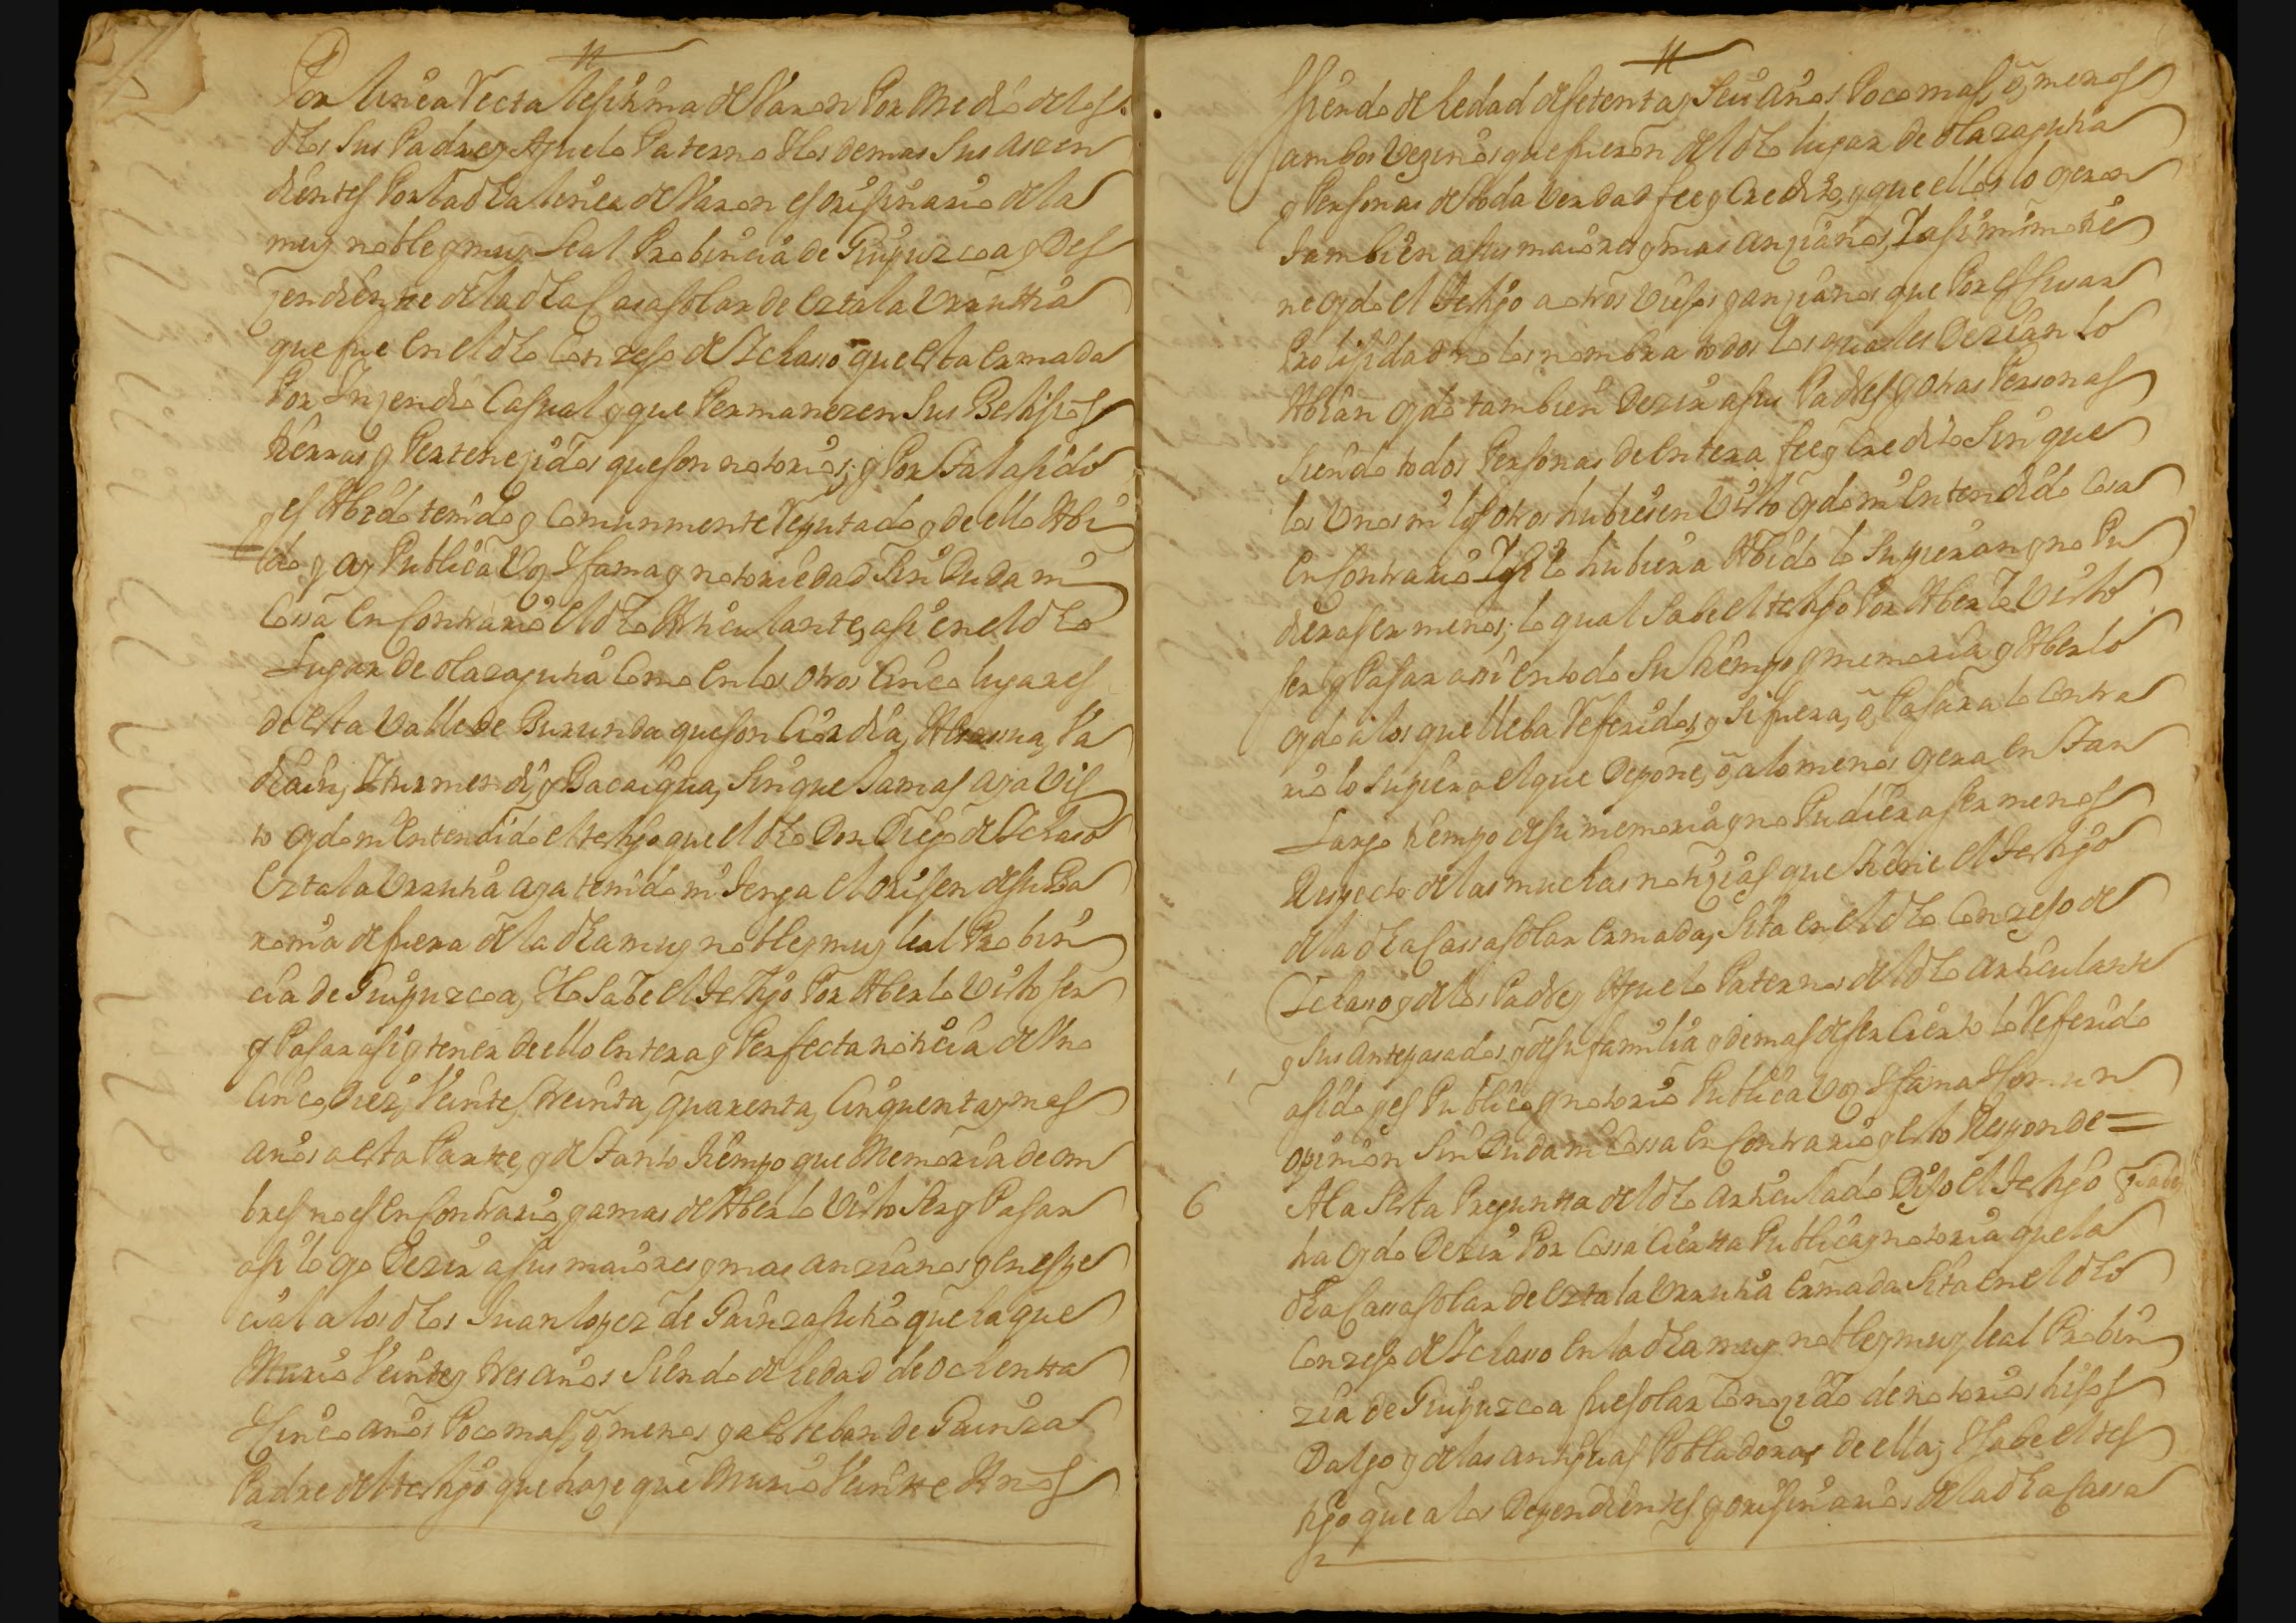 Por linea Recta lesitima de Varon Por Medio de los
dhos Sus Padre y Aguelo Paterno Y los demas Sus asZen
dientes Por la dha linea de Varon es orisinario de la
muy noble y muy Leal Probincia de Guipuzcoa y Des
zendiente de la dha Casa solar de Eztala Urrutia
que fue en el dho Conzejo de Ichasso que esta ermada
Por Inzendio Casual y que Permanezen Sus Bestisios
tierras y Pertenezidos que son notorios; y Por tal a sido
y es Abido tenido y Comunmente Reputado y de ello Abi
do y ay Publica Voz Y fama y notoriedad Sin Duda ni
Cossa en Contrario el dho Articulante, asi en el dho
Lugar de Olazagutia Como en los otros Cinco lugares
de esta Valle de Burunda que son Ciordia, Alsassua, Va
diain, Yturmendi, y Bacaigua, Sin que Jamas aya Vis
to oydo ni Entendido el testigo que el dho Don Diego de Ichaso
Eztala Urrutia aya tenido ni Tenga el orisen de su Ba
ronia de fuera de la dha muy noble y muy leal Probin
cia de Guipuzcoa, Y lo Sabe el testigo Por Aberlo Visto ser
y Pasar asi y tener de ello entera y Perfecta noticia de Uno
Cinco, Diez, Veinte, treinta, quarenta, Cinquenta, y mas
años a esta Parte, y de tanto tiempo que Memoria de om
bres no es en Contrario, y a mas de Aberlo Visto Ser y Pasar
asi lo oyo Dezir a sus maiores y mas anzianos y en espe
cial a los dhos Juan lopez de Gainza su tio que ha que
Murio Veinte y tres años Siendo de hedad de ochenta
Y cinco años Poco mas, o, menos y a Esteban de Gainza
Padre del testigo que haze que Murio Veinte Años
Siendo de hedad de setenta y Seis años Poco mas, o, menos
ambos Vezinos que fueron del dho lugar de olazagutia
y Personas de toda Verdad fee y Credito, y que ellos lo oyeron
tambien a sus maiores y mas anzianos, Y asi mismo tie
ne oydo el testigo a otros Viejos y anzianos que Por escusar
Prolisidad no los nombra todos los quales Dezian lo
Abian oydo tambien Dezir a sus Padres y otras Personas
Siendo todos Personas de entera fee y Credito Sin que
los Unos ni los otros hubiesen Visto oydo ni Entendido Cosa
en Contrario Y si lo hubiera Abido lo Supieran y no Pu
diera ser menos; lo qual Sabe el testigo Por Aberlo Visto
ser y Pasar assi en todo Su tiempo y memoria y Aberlo
oydo a los que lleba Referidos, y Si fuera, o, Pasara lo Contra
rio lo Supiera el que Depone, o, a lo menos oyera en tan
Largo tiempo de su memoria y no Pudiera ser menos
Respecto de las muchas notizias que tiene el testigo
de la dha Cassa solar ermada, Sita en el dho Conzejo de
Ichasso y de los Padre y Aguelo Paternos del dho articulante
y Sus antepasados, y de su familia y demas de ser Cierto lo Referido
a sido y es Publico y notorio Publica Voz Y fama Y Comun
opinion Sin Duda ni Cossa en Contrario y esto Responde=
6 A la Sesta Pregunta del dho articulado Dijo el testigo
ha oydo Dezir Por Cossa Cierta Publica y notoria que la
dha Cassa solar de Eztala Urrutia ermada Sita en el dho
Conzejo de Ichasso en la dha muy noble y muy leal Probin
zia de Guipuzcoa fue solar Conozido de notorios hijos
Dalgo y de las antiguas Pobladoras de ella, Y Sabe el tes
tigo que a los Dependientes y orisinarios de la dha Cassa